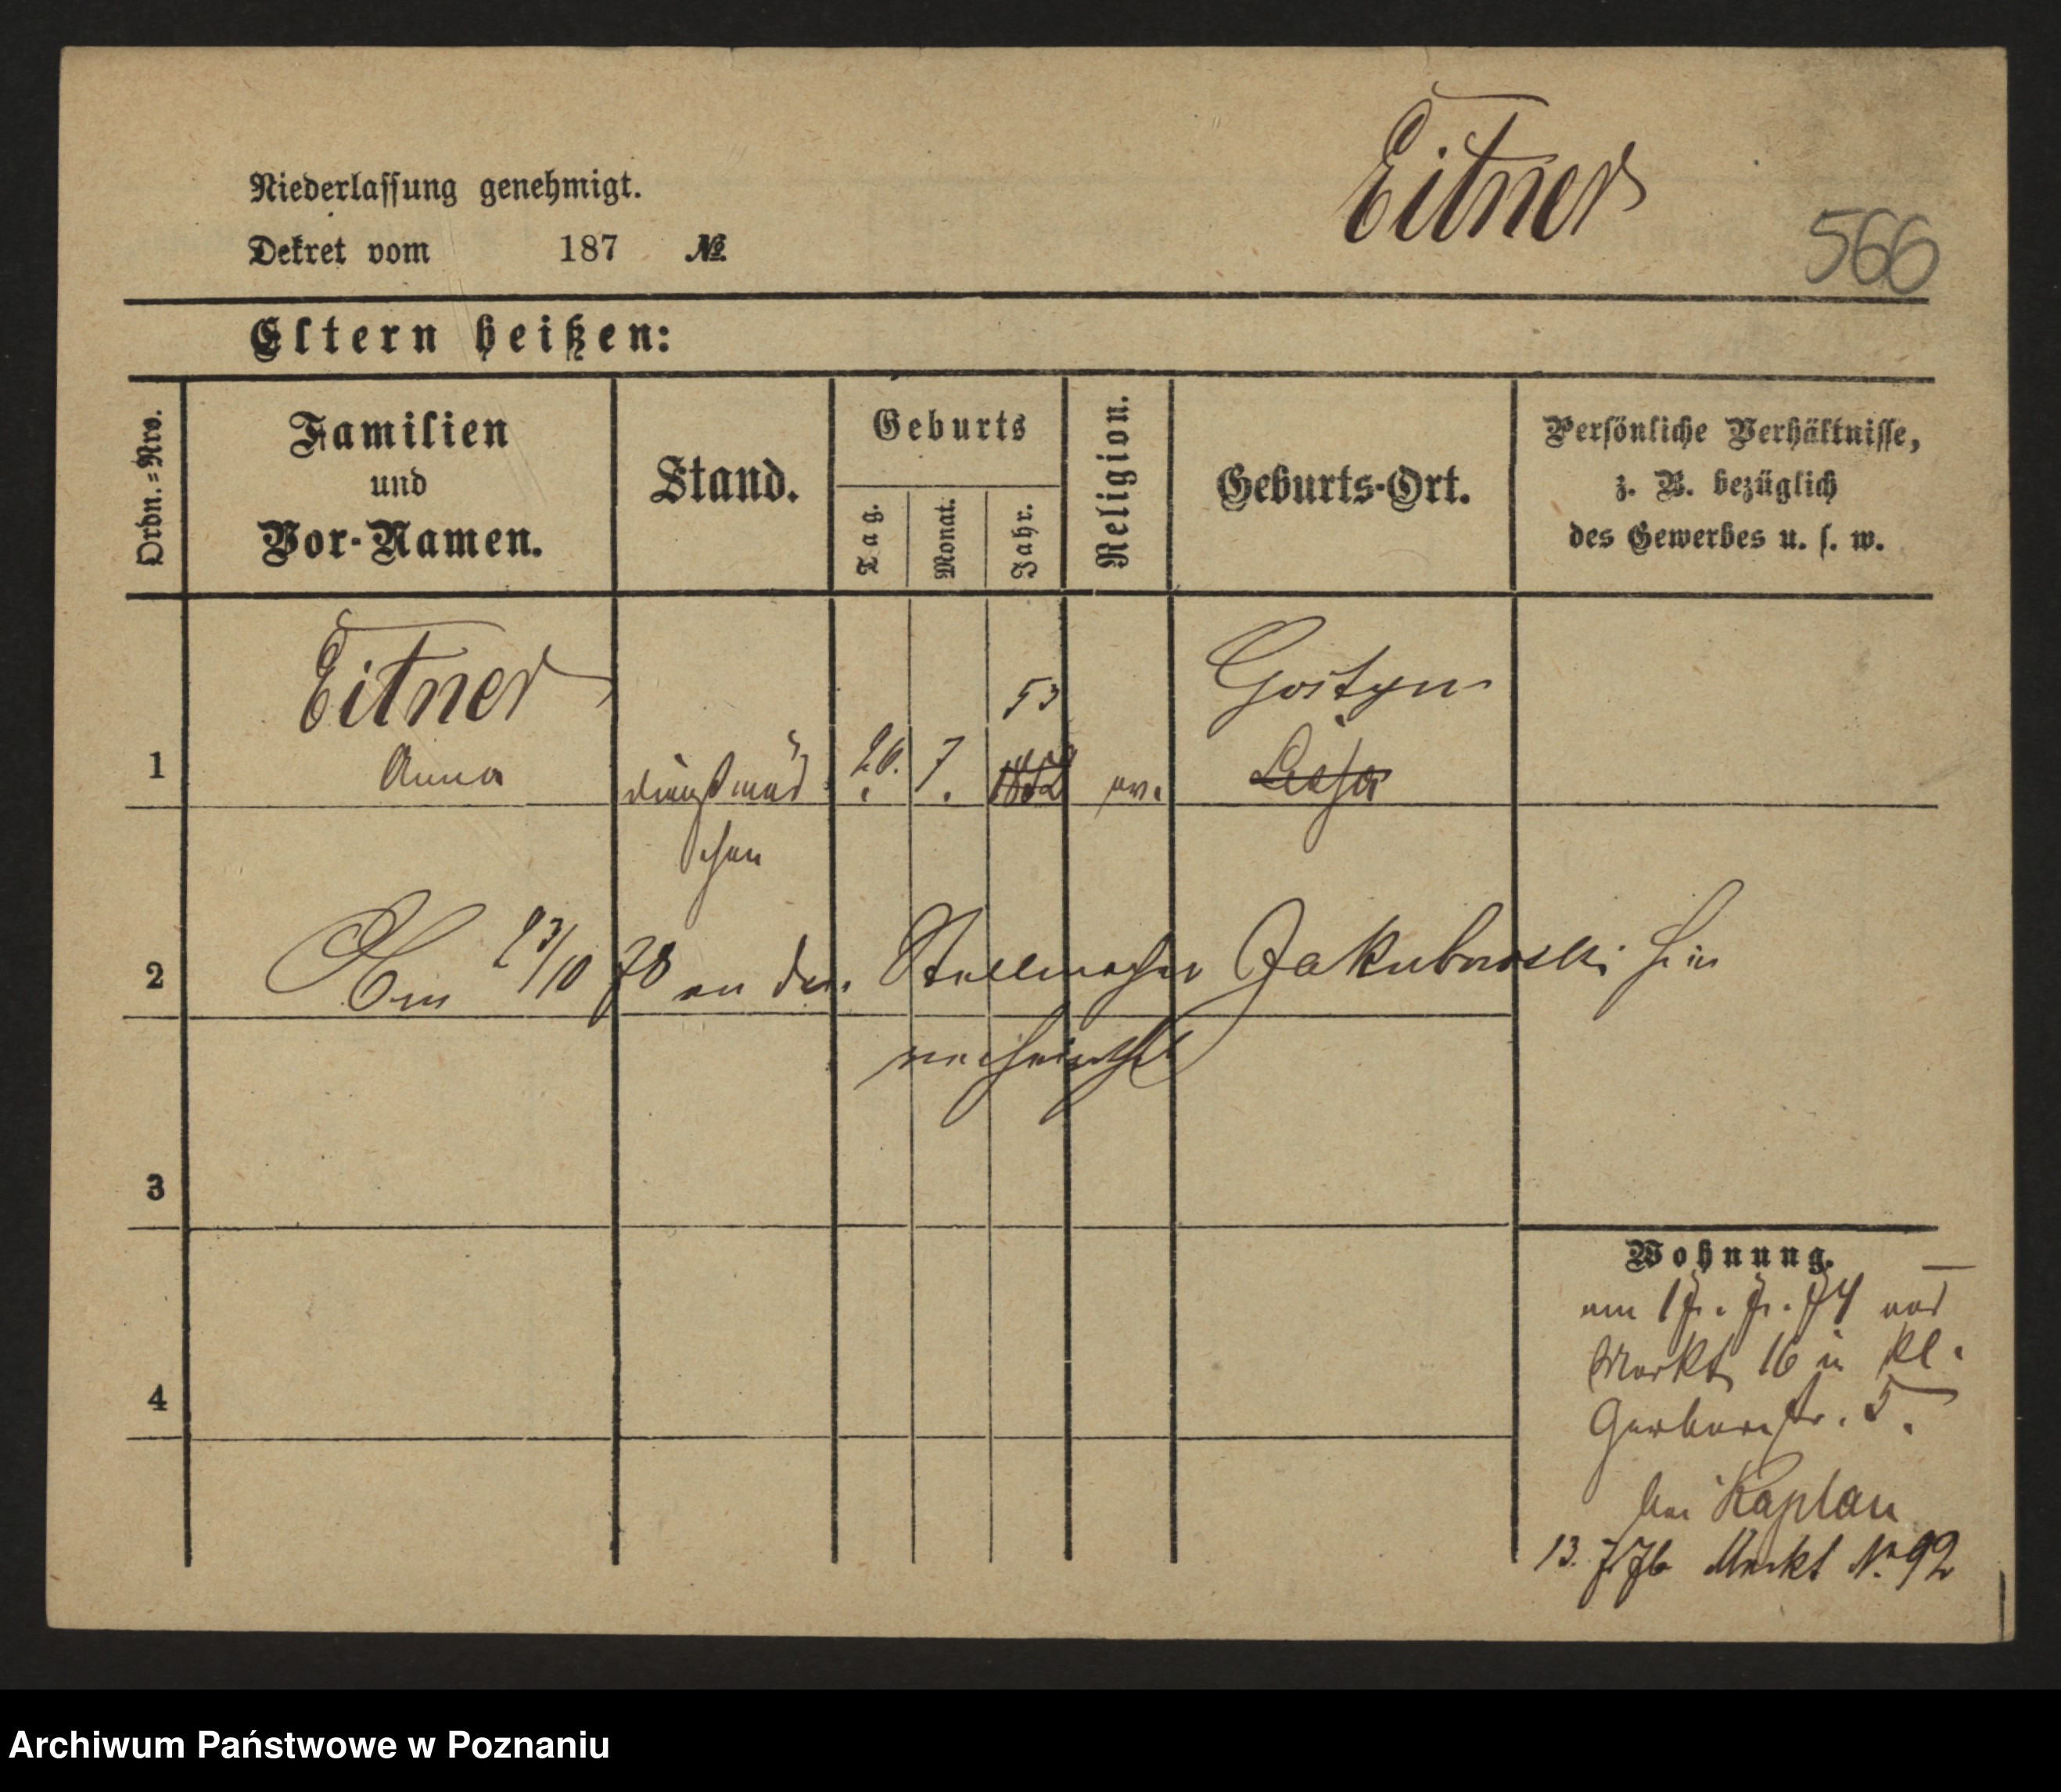 Eitner
566
Niederlassung genehmigt.
Dekret vom 187 №
Eltern heißen:
Ordn.-Nro.
Familien
und
Vor-Namen.
Stand.
Geburts
Tag.
Monat.
Jahr.
Religion.
Geburts-Ort.
Persönliche Verhältnisse,
z. B. bezüglich
des Gewerbes u. s. w.
Eitner
53
Gostyn
1 Anna dienstmäd 26. 7. 1852 ev. Lissa
chen
2 Am 23/10 78 an den Stellmacher Jakubowski hier
verheirathet
3
4
Wohnung.
am 17. 7. 74 von
Markt 16 in kl.
Gerberstr. 5.
bei Kaplan
13. 7 76 Markt N. 92
Archiwum Państwowe w Poznaniu